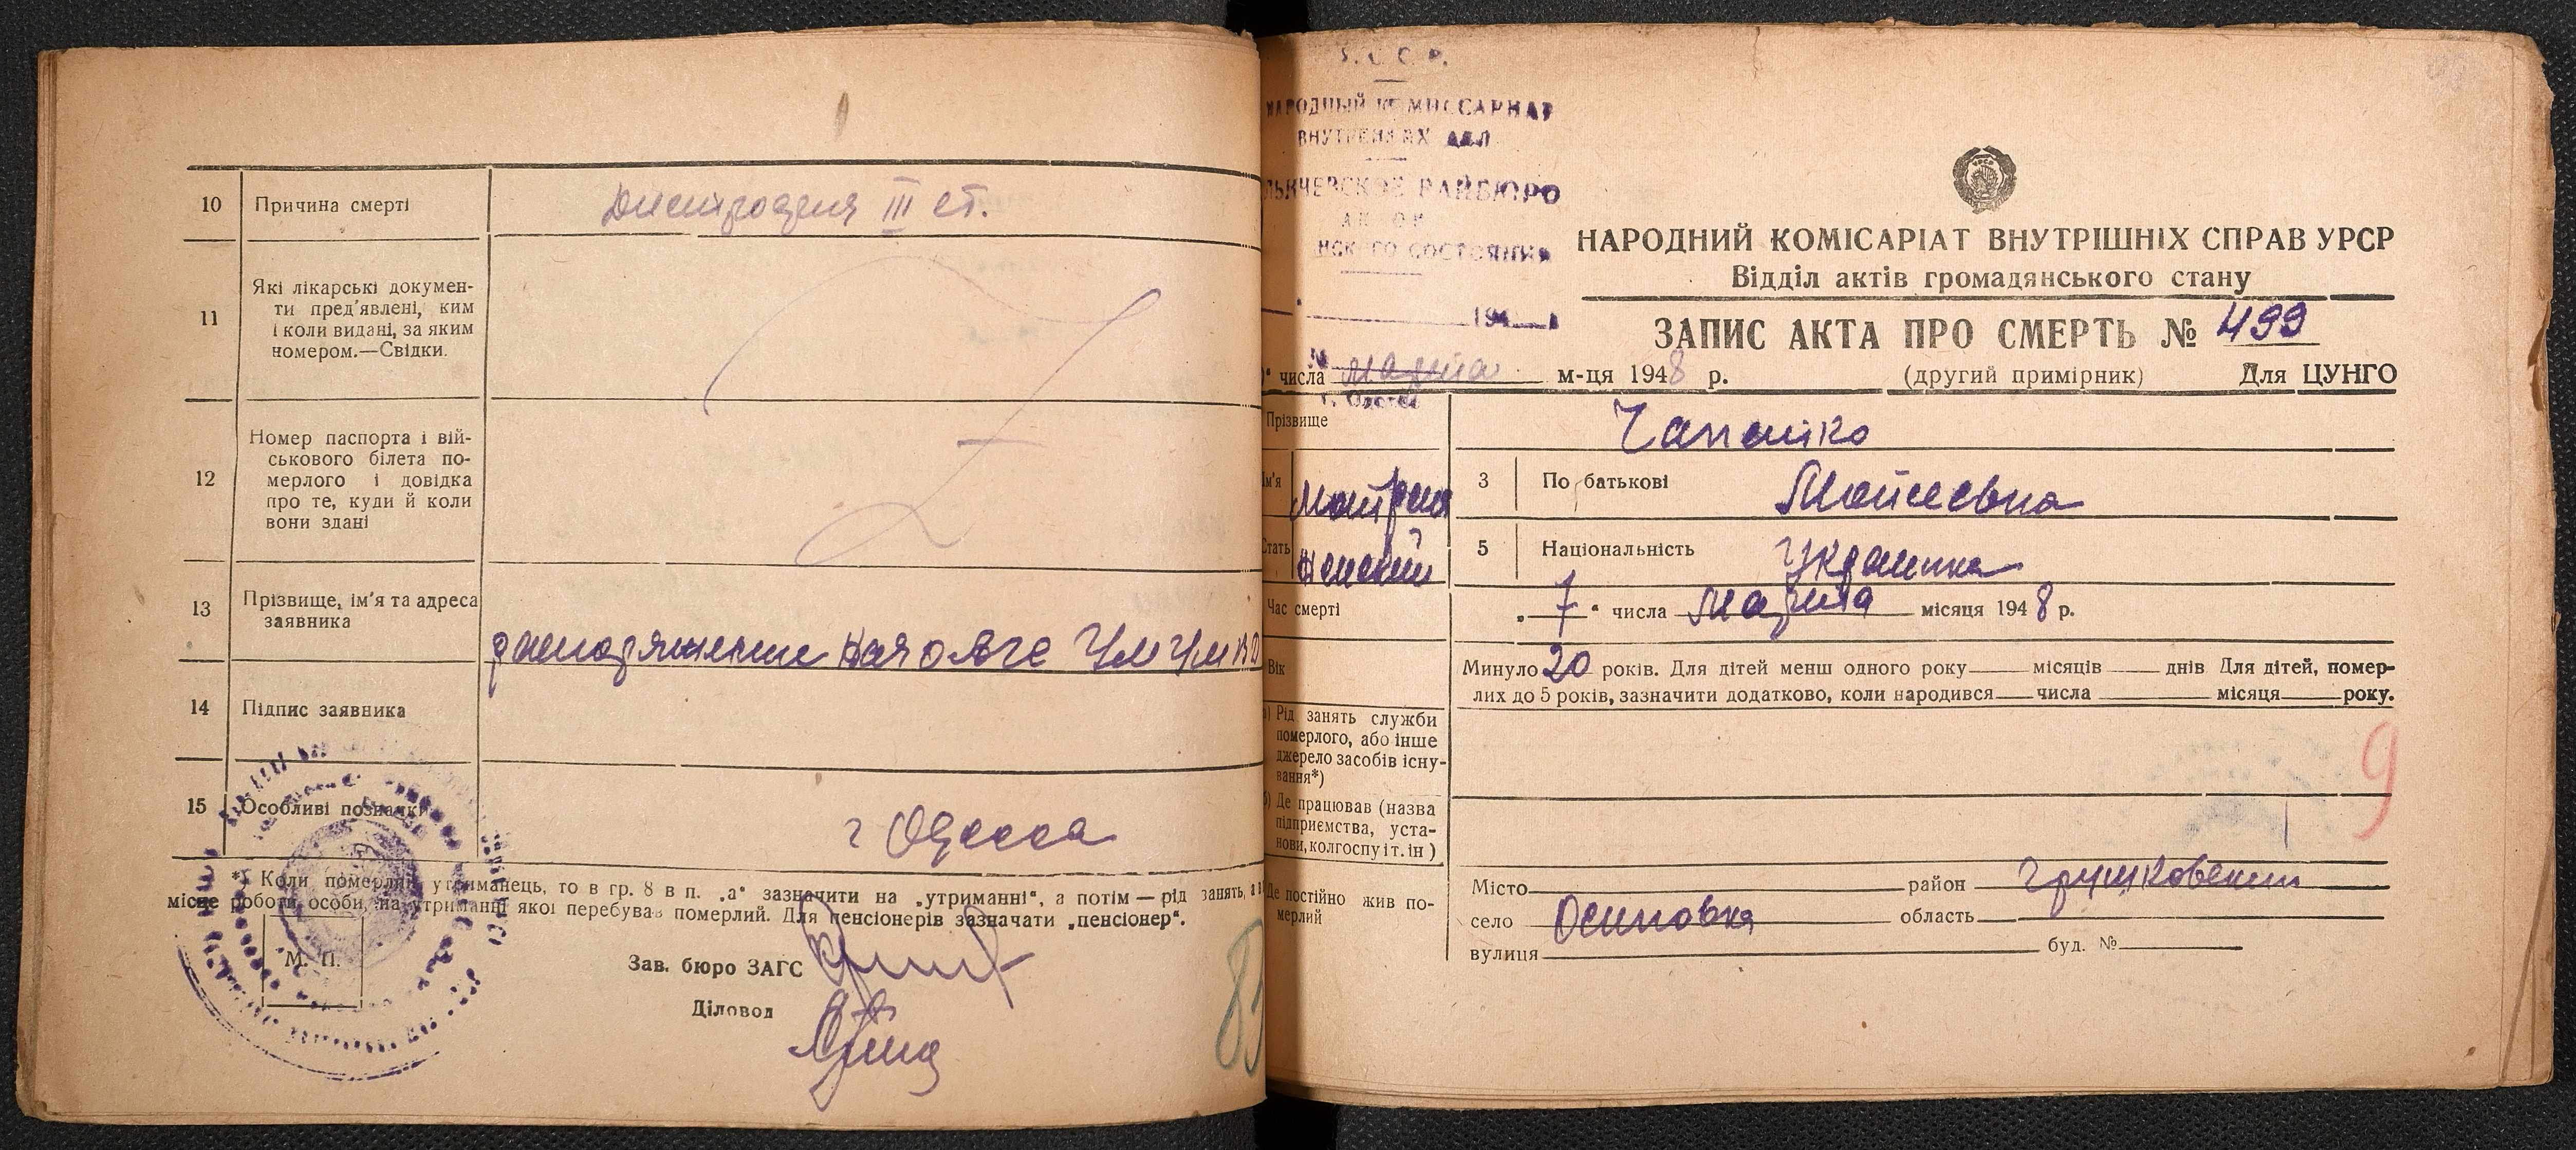 10 Причина смерти
Дистрофия III ст.
11 Які лікарські докумен-
ти пред'явлені, ким
і коли видані, за яким
номером.—Свідки.
12 Номер паспорта і вій-
ськового білета по-
мерлого і довідка
про те, куди й коли
вони здані
13 Прізвище, ім'я та адреса
заявника
14 Підпис заявника
15 Особливі позначки
г Одесса
*) Коли померлий утриманець, то в гр. 8 в п. „а“ зазначити на „утриманні“, а потім — рід занять, а в
місце роботи особи, на утриманні якої перебував померлий. Для пенсіонерів зазначати „пенсіонер“.
М. П.
Зав. бюро ЗАГС
Діловод
83
У. С. С. Р.
НАРОДНЫЙ КОМИССАРИАТ
ВНУТРЕННИХ ДЕЛ
РАЙБЮРО
СОСТОЯНИЯ
194
г. Одесса
НАРОДНИЙ КОМІСАРІАТ ВНУТРІШНІХ СПРАВ УРСР
Відділ актів громадянського стану
ЗАПИС АКТА ПРО СМЕРТЬ № 499
числа марта м-ця 1948 р. (другий примірник) Для ЦУНГО
Прізвище
Ім'я Матрена 3 По батькові Моисеевна
Стать женский 5 Національність Украинка
Час смерті „7“ числа Марта місяця 1948 р.
Вік Минуло 20 років. Для дітей менш одного року місяців днів Для дітей, помер-
лих до 5 років, зазначити додатково, коли народився числа місяця року.
а) Рід занять служби
померлого, або інше
джерело засобів існу-
вання*)
9
б) Де працював (назва
підприємства, уста-
нови, колгоспу і т. ін )
Де постійно жив по-
мерлий
Місто район Грушковский
село Осиповка область
вулиця буд. №